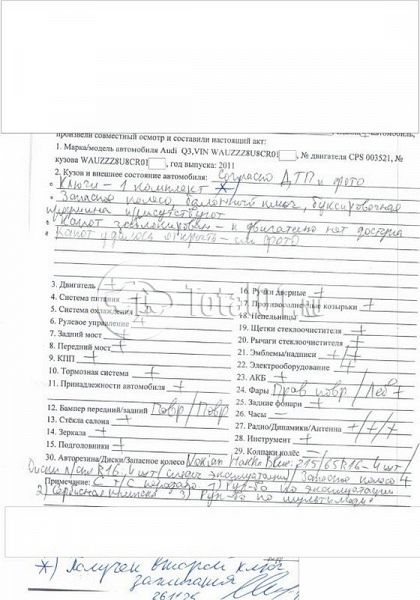 произвели совместный осмотр и составили настоящий акт:
1. Марка/модель автомобиля Audi Q3, VIN WAUZZZ8U8CR01 , № двигателя CPS 003521, №
кузова WAUZZZ8U8CR01 , год выпуска: 2011
2. Кузов и внешнее состояние автомобиля: Согласно ДТП и фото
• Ключи - 1 комплект *)
• Запасное колесо, балонный ключ, буксировочная
проушина присутствуют
• Капот заблокирован - к двигателю нет доступа
• Капот удалось открыть - см фото
3. Двигатель +
4. Система питания
5. Система охлаждения
6. Рулевое управление +
7. Задний мост +
8. Передний мост +
9. КПП +
10. Тормозная система +
11. Принадлежности автомобиля +
12. Бампер передний/задний Повр/Повр
13. Стёкла салона +
14. Зеркала +
15. Подголовники +
16. Ручки дверные +
17. Противосолнечные козырьки +
18. Пепельницы
19. Щетки стеклоочистителя +
20. Рычаги стеклоочистителя +
21. Эмблемы/надписи +/+
22. Электрооборудование +
23. АКБ +
24. Фары Прав повр/Лев +
25. Задние фонари +
26. Часы —
27. Радио/Динамики/Антенна +/+/+
28. Инструмент +
29. Колпаки колёс —
30. Авторезина/Диски/Запасное колесо Nokian Hakka Blue 215/65R16 - 4 шт/
Диски R16 4 шт/ следы эксплуатации/ Запасное колесо
Примечание: С т/с передано: 1) Рук-во по эксплуатации
2) Сервисная книжка 3) Рук-во по мультимедиа
*) Получен второй ключ
зажигания